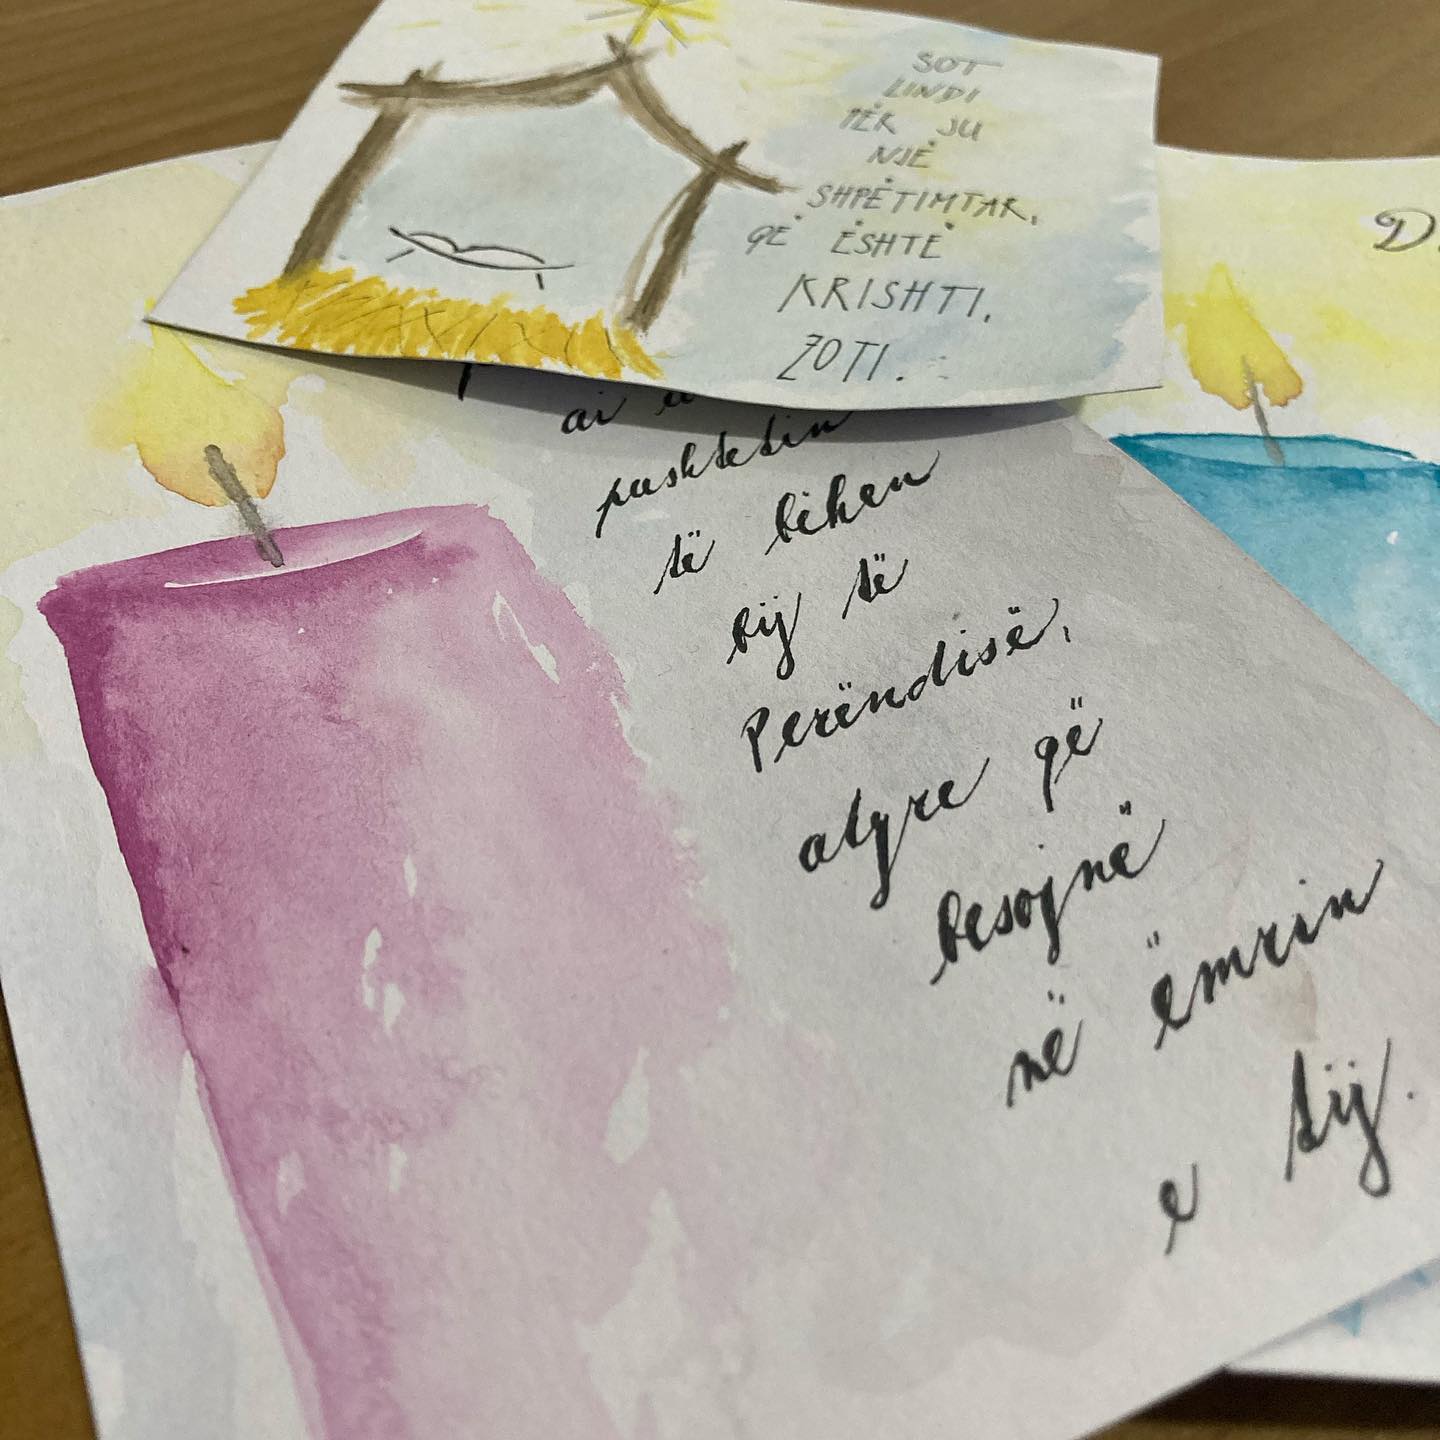 SOT
LINDI
PËR JU
NJË
SHPËTIMTAR,
QË ËSHTË
KRISHTI,
ZOTI.
ai
pushtetin
të bihen
bij të
Perëndisë,
atyre që
besojnë
në ëmrin
e tij.
D